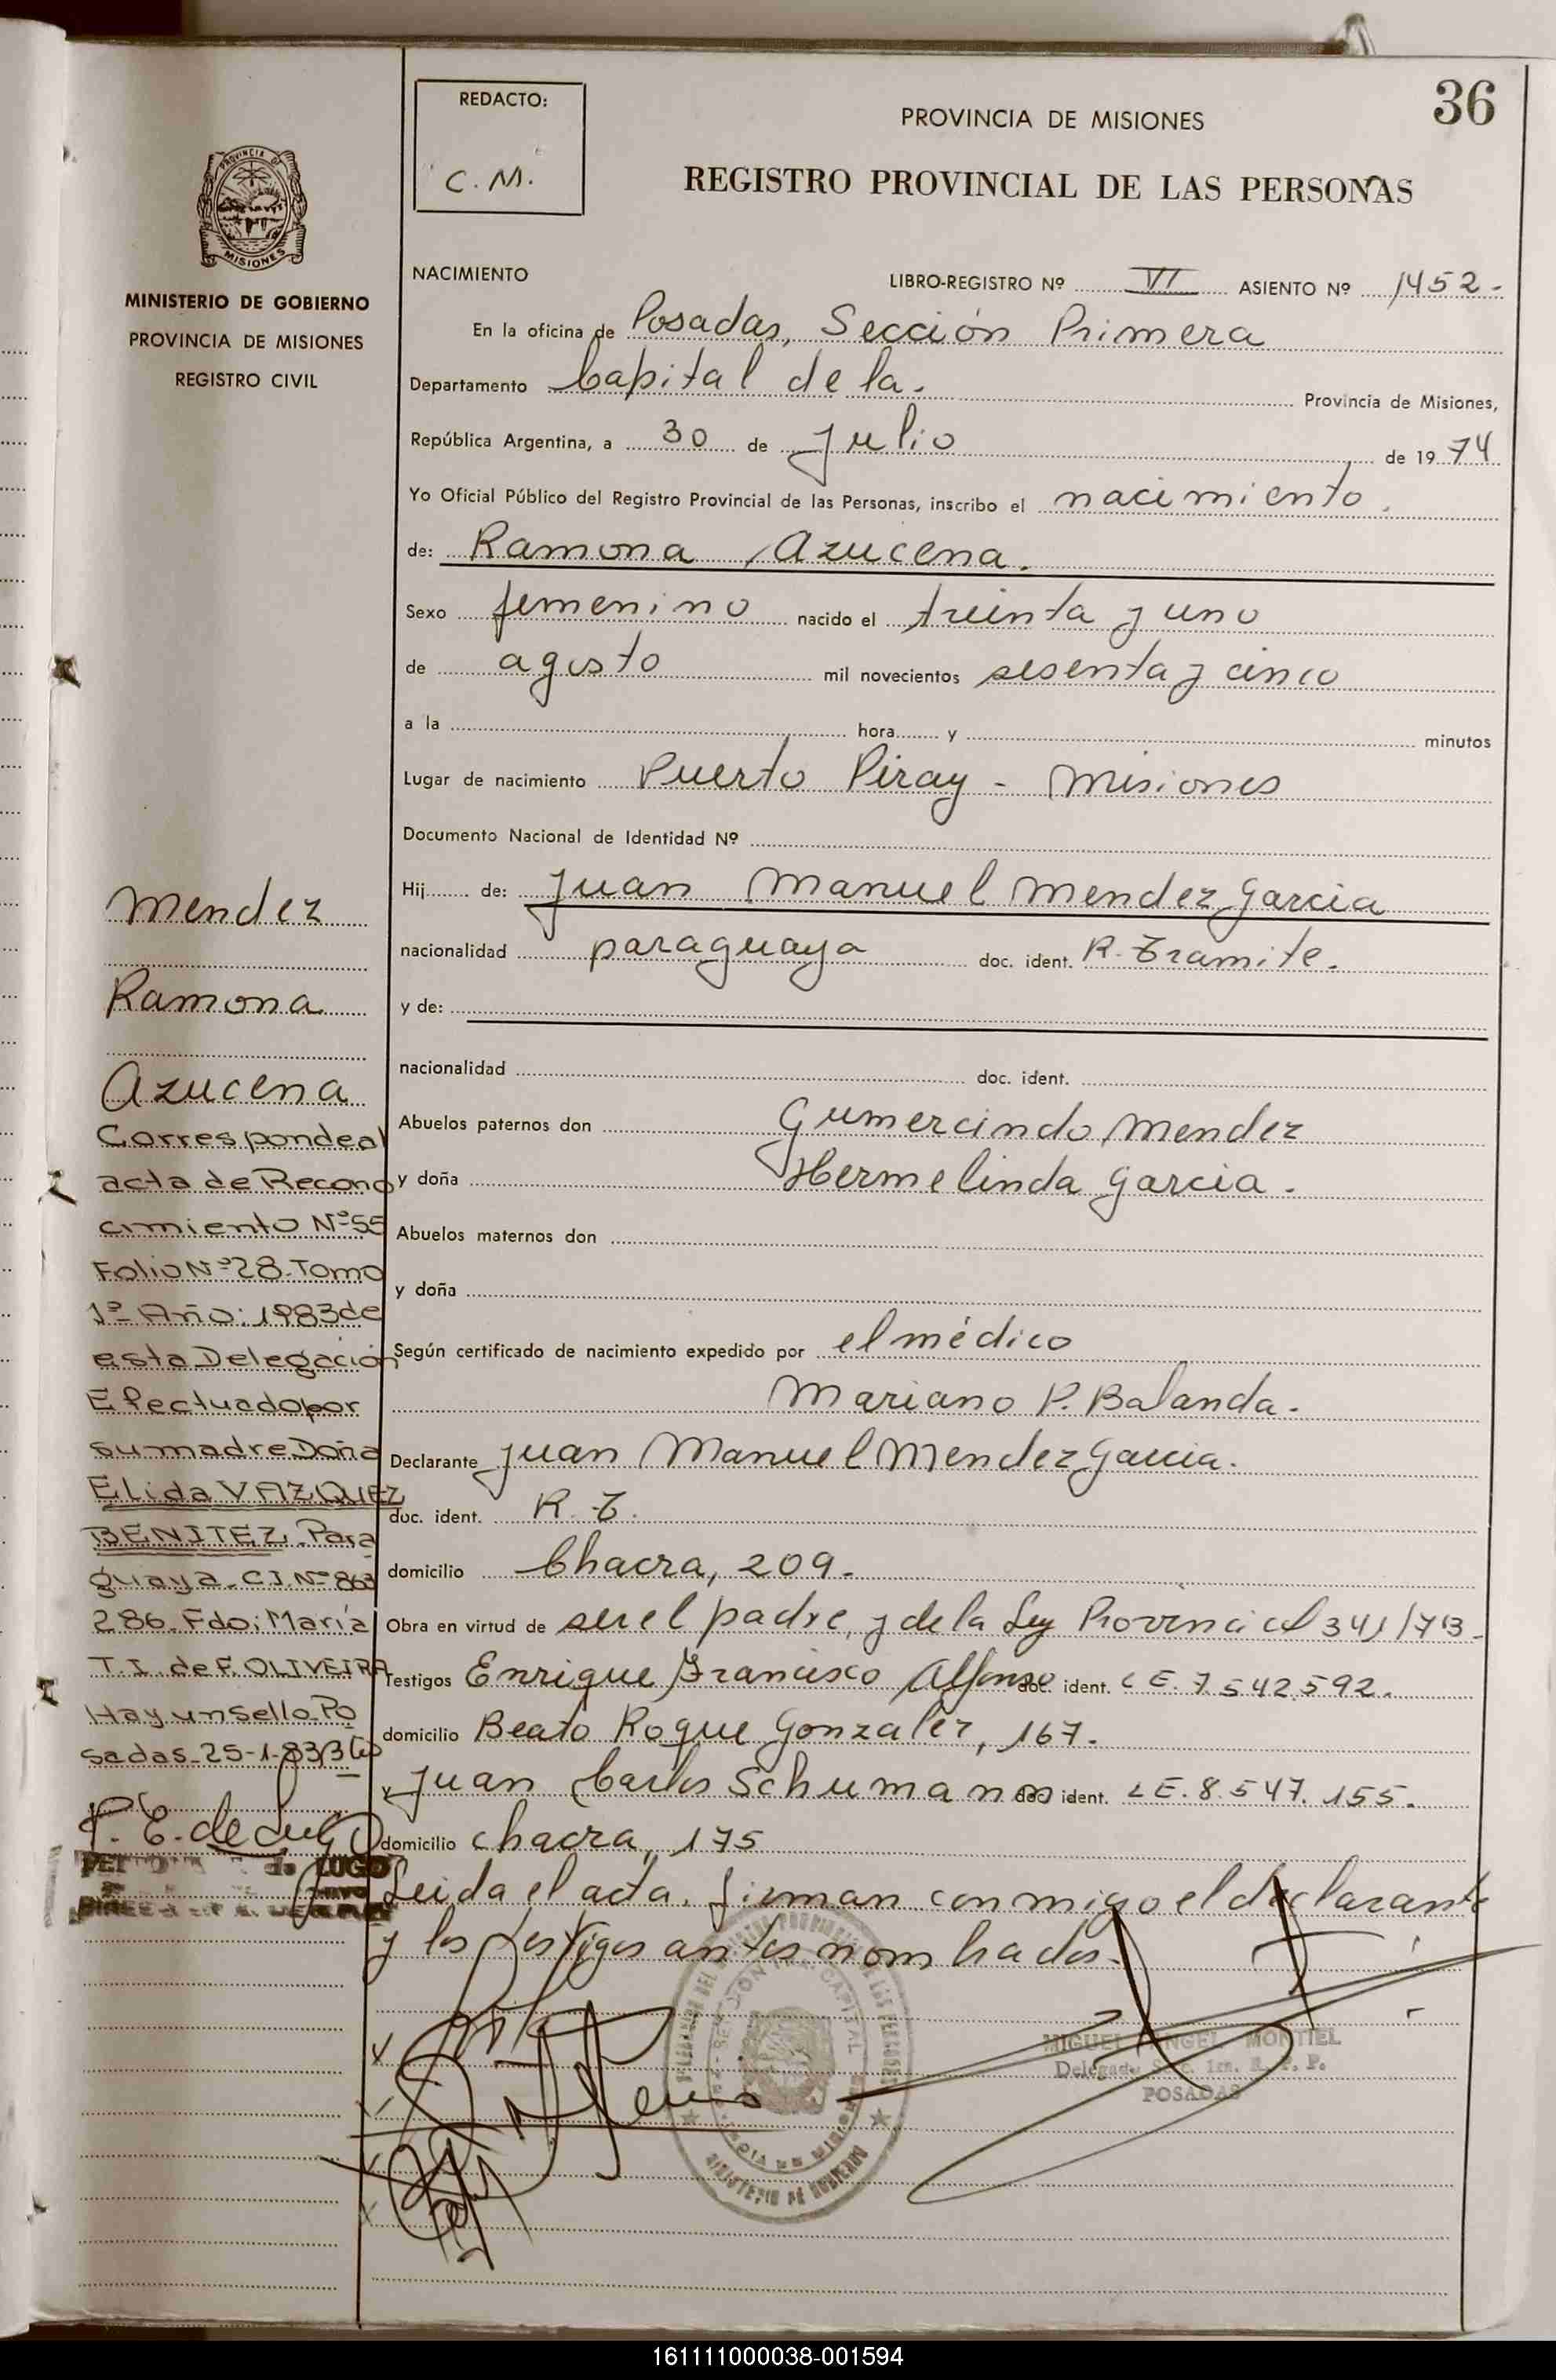 36
REDACTO:
C.M.
PROVINCIA DE MISIONES
REGISTRO PROVINCIAL DE LAS PERSONAS
PROVINCIA DE
MISIONES
MINISTERIO DE GOBIERNO
PROVINCIA DE MISIONES
REGISTRO CIVIL
NACIMIENTO LIBRO-REGISTRO Nº VI ASIENTO Nº 1452-
En la oficina de Posadas, Sección Primera
Departamento Capital de la. Provincia de Misiones,
República Argentina, a 30 de Julio de 1974
Yo Oficial Público del Registro Provincial de las Personas, inscribo el nacimiento.
de: Ramona Azucena.
Sexo femenino nacido el treinta y uno
de agosto mil novecientos sesenta y cinco
a la hora y minutos
Lugar de nacimiento Puerto Piray - Misiones
Documento Nacional de Identidad Nº
Hij de: Juan Manuel Mendez Garcia
nacionalidad paraguaya doc. ident. R. Tramite.
y de:
nacionalidad doc. ident.
Abuelos paternos don Gumercindo Mendez
y doña Hermelinda Garcia.
Abuelos maternos don
y doña
Según certificado de nacimiento expedido por el médico
Mariano P. Balanda.
Declarante Juan Manuel Mendez Garcia.
doc. ident. R. T.
domicilio Chacra, 209.
Obra en virtud de ser el padre, y de la Ley Provincial 341/73-
Testigos Enrique Francisco Alfonso doc. ident. LE. 7.542.592.
domicilio Beato Roque Gonzalez, 167.
y Juan Carlos Schumann doc ident. LE. 8.547.155.
domicilio chacra, 175
Leida el acta. firman conmigo el declarante
y los testigos antes nombrados.
Mendez
Ramona
Azucena
Corresponde al
acta de Recono
cimiento Nº 55
Folio Nº 28. Tomo
1º Año: 1983 de
esta Delegación
Efectuado por
su madre Doña
Elida VAZQUEZ
BENITEZ. Para
guaya. C.I. Nº 863
286. Fdo: María
T.I. de F. OLIVEIRA
Hay un sello. Po
sadas 25-1-83
P. E. de Lugo
de LUGO
MIGUEL ANGEL MONTIEL
POSADAS
MINISTERIO DE GOBIERNO
161111000038-001594